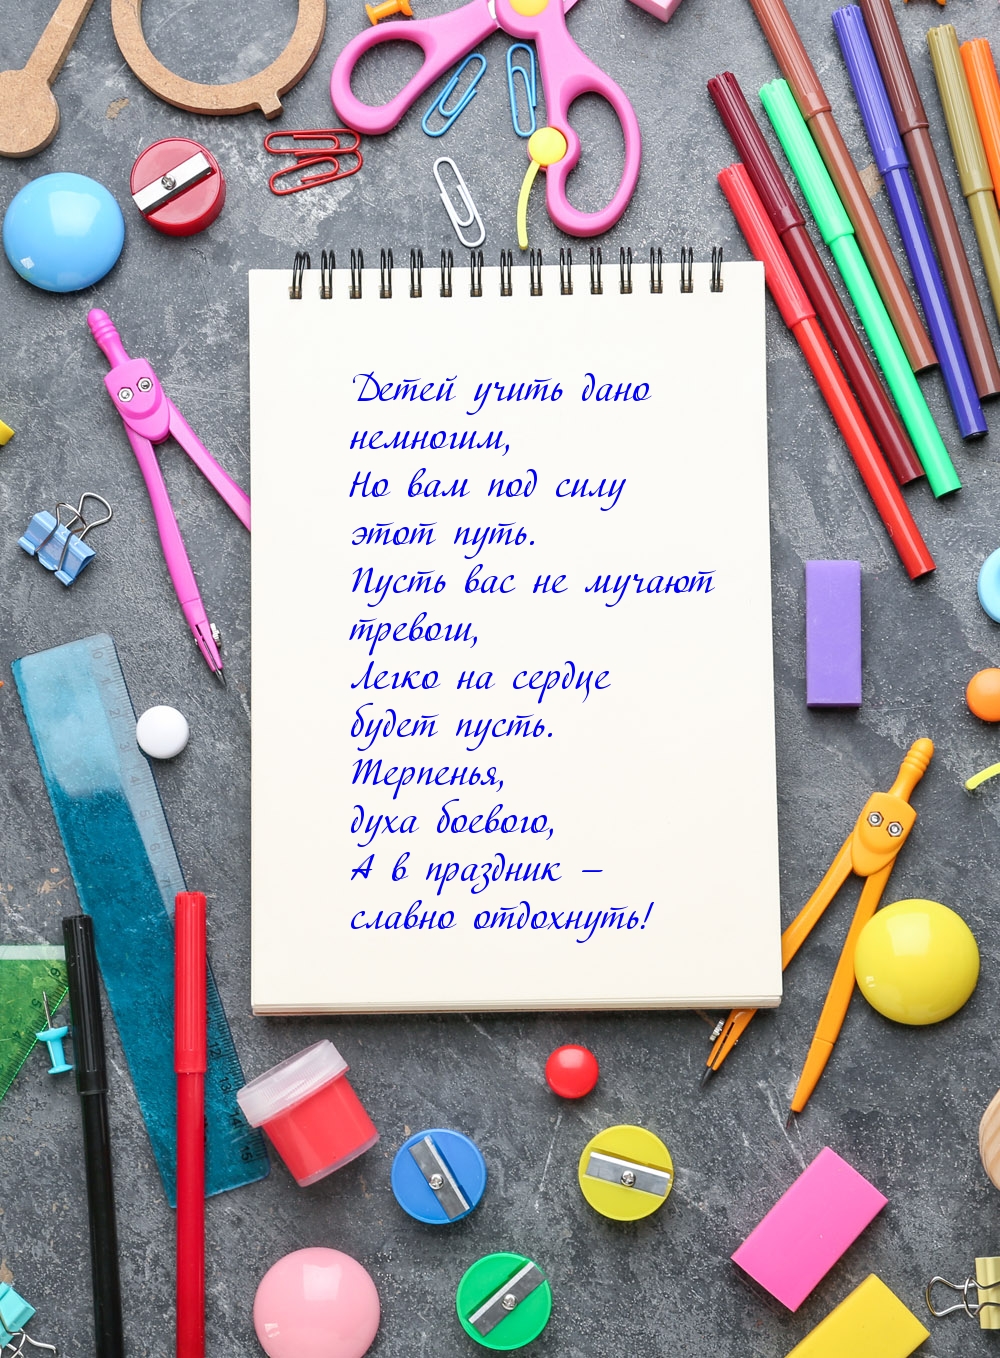 Детей учить дано
немногим,
Но вам под силу
этот путь.
Пусть вас не мучают
тревоги,
Легко на сердце
будет пусть.
Терпенья,
духа боевого,
А в праздник –
славно отдохнуть!